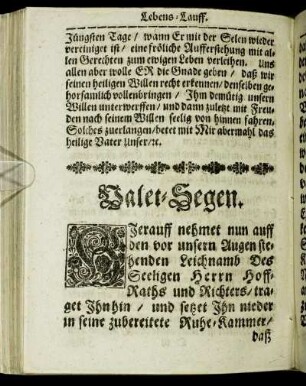 Lebens-Lauff.
Jüngsten Tage / wann Er mit der Selen wieder
vereiniget ist / eine fröliche Aufferstehung mit al-
len Gerechten zum ewigen Leben verleihen. Uns
allen aber wolle ER die Gnade geben / daß wir
seinen heiligen Willen recht erkennen / denselben ge-
horsamlich vollenbringen / Ihm demütig unsern
Willen unterwerffen / und dann zuletzt mit Freu-
den nach seinem Willen seelig von hinnen fahren,
Solches zuerlangen / betet mit Mir abermahl das
heilige Vater Unser / ꝛc.
Valet-Segen.
HJerauff nehmet nun auff
den vor unsern Augen ste-
henden Leichnamb Des
Seeligen Herrn Hoff-
Raths und Richters / tra-
get Ihn hin / und setzet Ihn nieder
in seine zubereitete Ruhe-Kammer /
daß